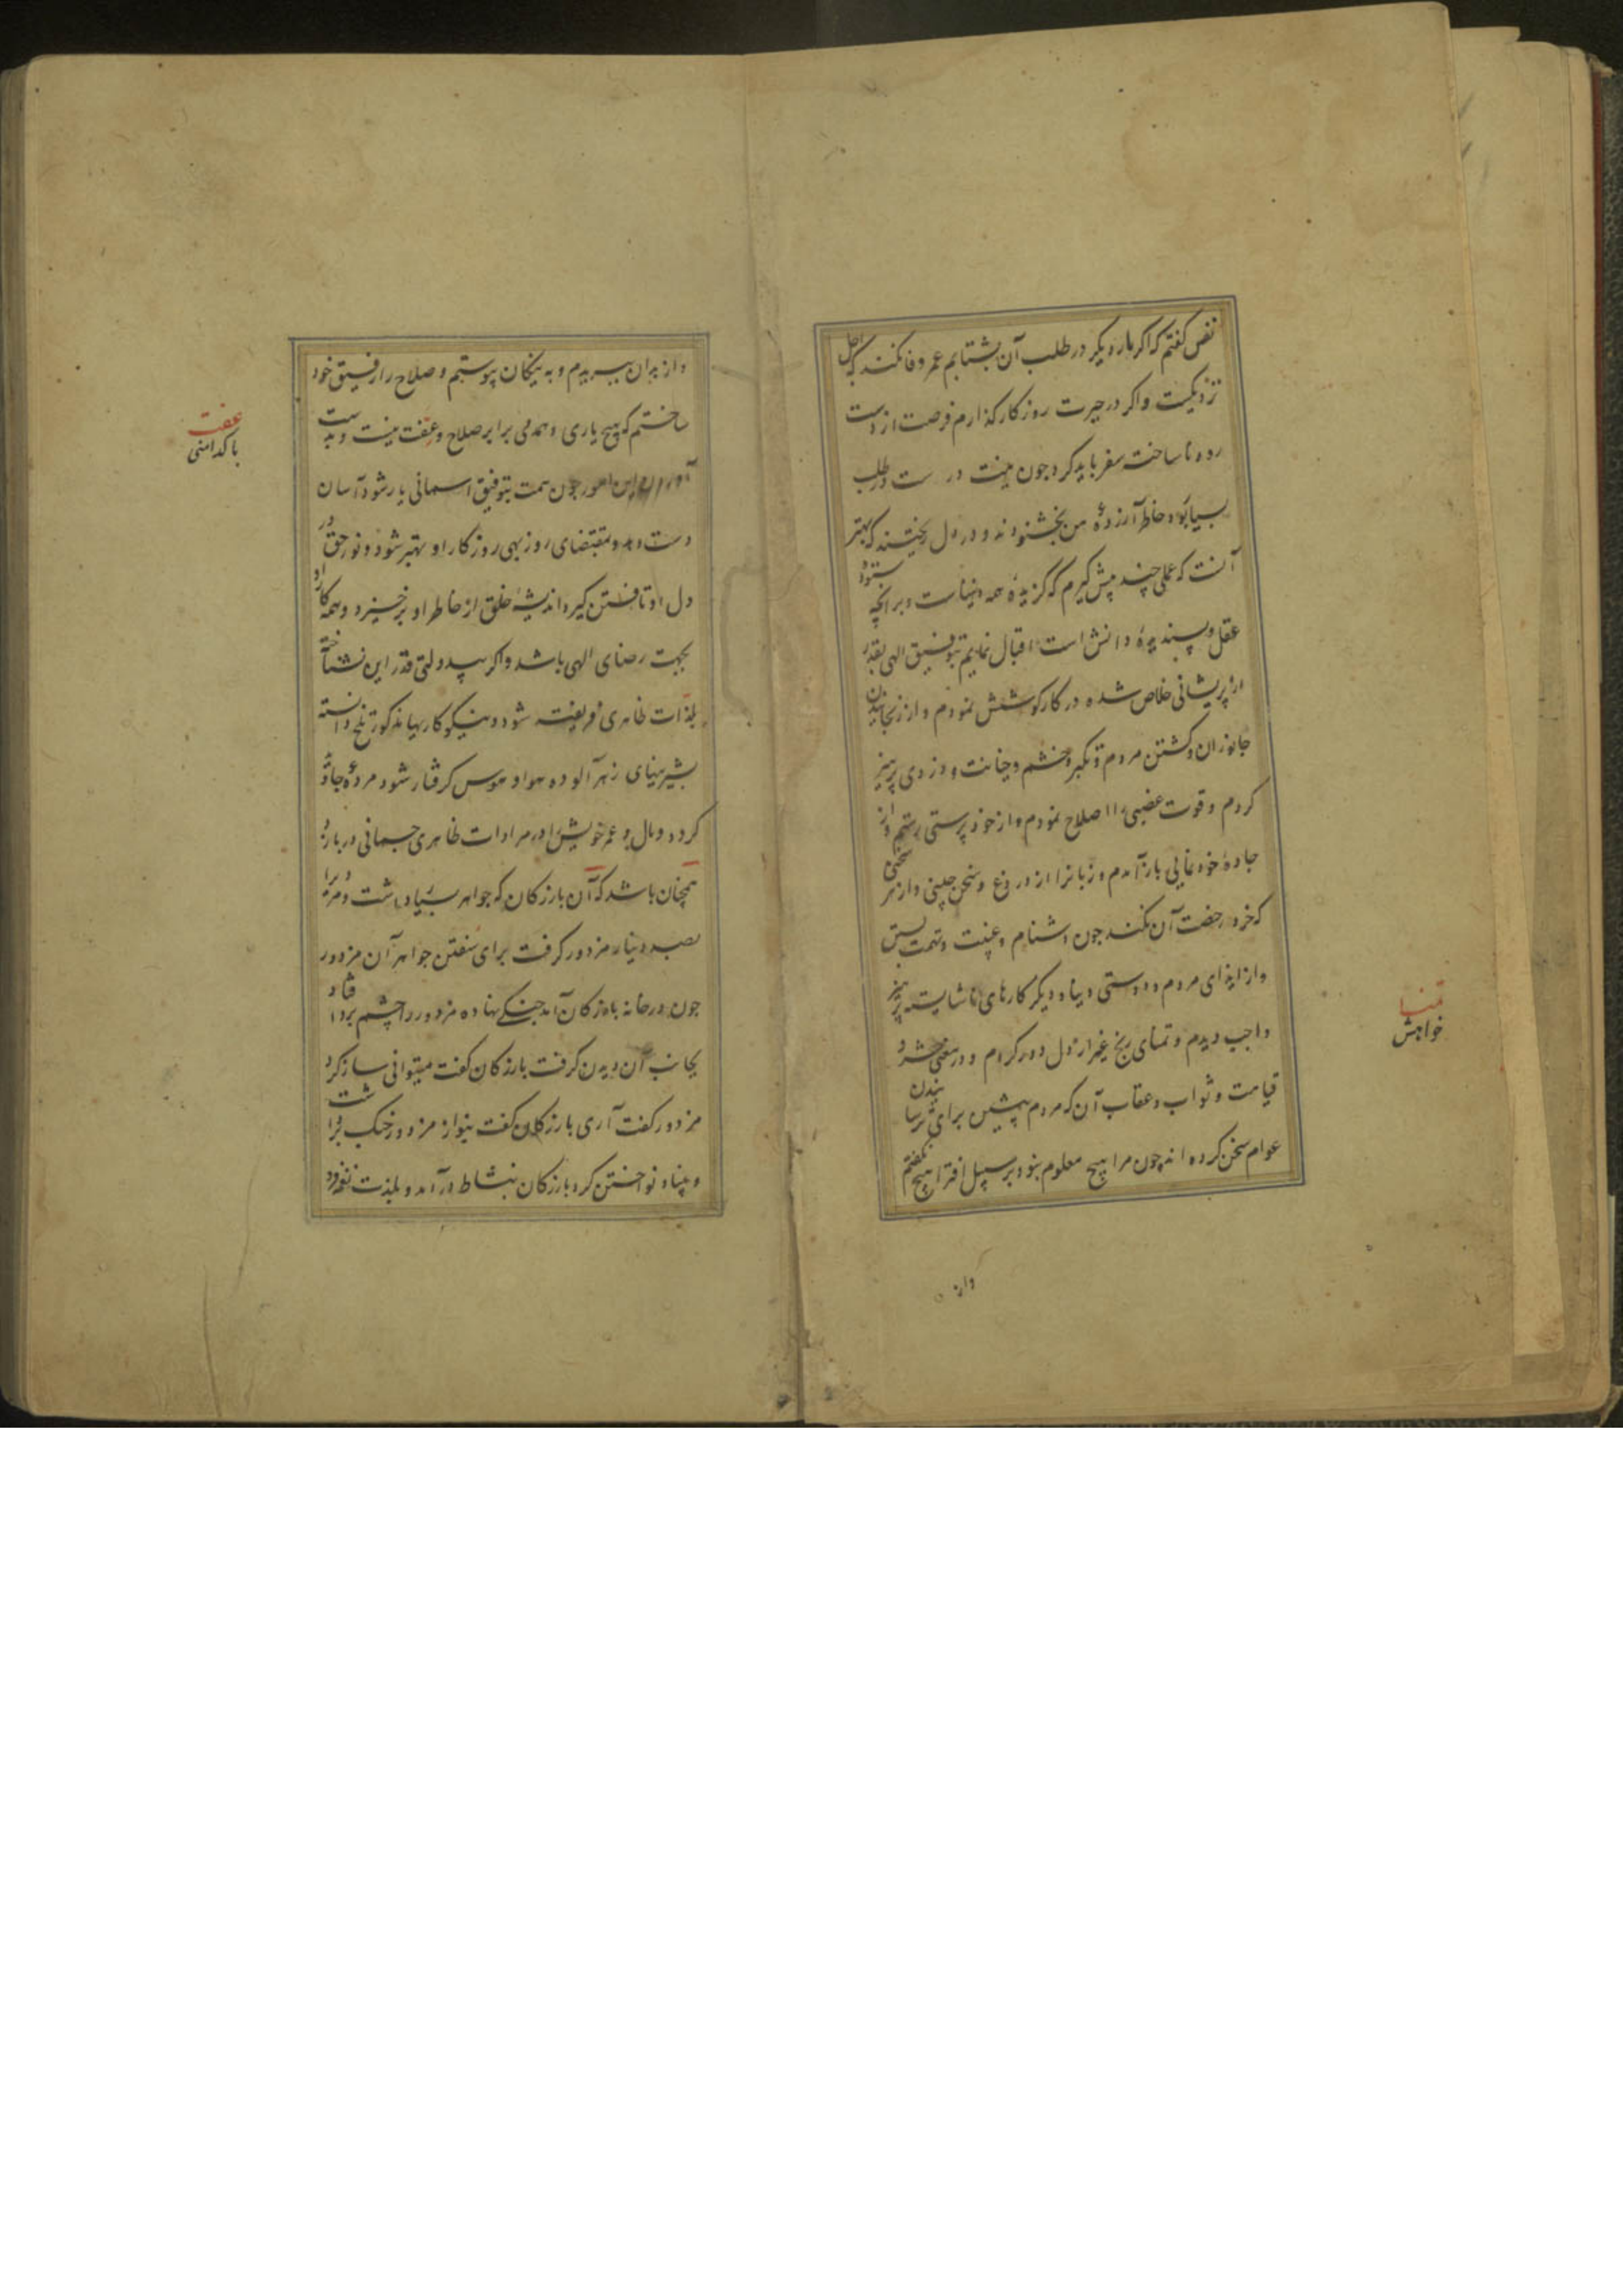 نفس گفتم که اگر بار دیگر در طلب آن بشتابم عمر وفا نکند که اجل
نزدیکست و اگر در حیرت روزگار گذارم فرصت از دست
رود ناساخته سفر باید کرد چون نیت در ست در طلب
بسیار بود خاطر آزرده من بخشنودند و در دل ریختند که بهتر
آنست که عملی چند پیش گیرم که گزیده همه دینهاست و بر آنچه ستوده
عقل و پسندیده دانش است اقبال نمایم بتوفیق الهی بقدر
از پریشانی خلاص شده در کار کوشش نمودم و از رنجانیدن
جانوران و کشتن مردم و تکبر و خشم و خیانت و دزدی پرهیز
کردم و قوت غضبی را اصلاح نمودم و از خود پرستی رستم و از
جاده خودنمایی باز آمدم و زبانرا از دروغ و سخن چینی و از هر سخنی
که خرد رخصت آن نکند چون دشنام و غیبت و تهمت بستن
و از ایذای مردم و دوستی دنیا و دیگر کارهای ناشایسته پرهیز
واجب دیدم و تمنای رنج غیر از دل دور کردم و در معنی حشر و
قیامت و ثواب و عقاب آن که مردم پیشین برای ترسانیدن
عوام سخن کرده اند چون مرا هیچ معلوم نبود بر سبیل افترا هیچ نگفتم
واز
تمنا
خواهش
و از بدان ببریدم و به نیکان پیوستم و صلاح را رفیق خود
ساختم که هیچ یاری و همدمی برابر صلاح و عفت نیست و بدست
آوردن این امور چون همت بتوفیق آسمانی یار شود آسان
دست دهد و بمقتضای روزبهی روزگار او بهتر شود و نور حق در
دل او تافتن گیرد اندیشه خلق از خاطر او برخیزد و همه کار او
بجهت رضای الهی باشد و اگر بیدولتی قدر این نشناخته
بلذات ظاهری فریفته شود و نیکوکاریهای مذکور تلخ دانسته
بشیرینیای زهرآلوده هوا و هوس گرفتار شود مرده جاوید
گردد و مال و عمر خویش را در مرادات ظاهری جسمانی در بازد
همچنان باشد که آن بازرگان که جواهر بسیار داشت و مردی را
بصد دینار مزدور گرفت برای سفتن جواهر آن مزدور
چون در خانه بازرگان آمد چنگی نهاده مزدور را چشم بر او افتاد
بجانب آن دیدن گرفت بازرگان گفت میتوانی ساز کرد
مزدور گفت آری بازرگان گفت بنواز مزدور چنگ برداشت
و بنیاد نواختن کرد بازرگان بنشاط درآمد و بلذت نغمه
عفت
پاکدامنی